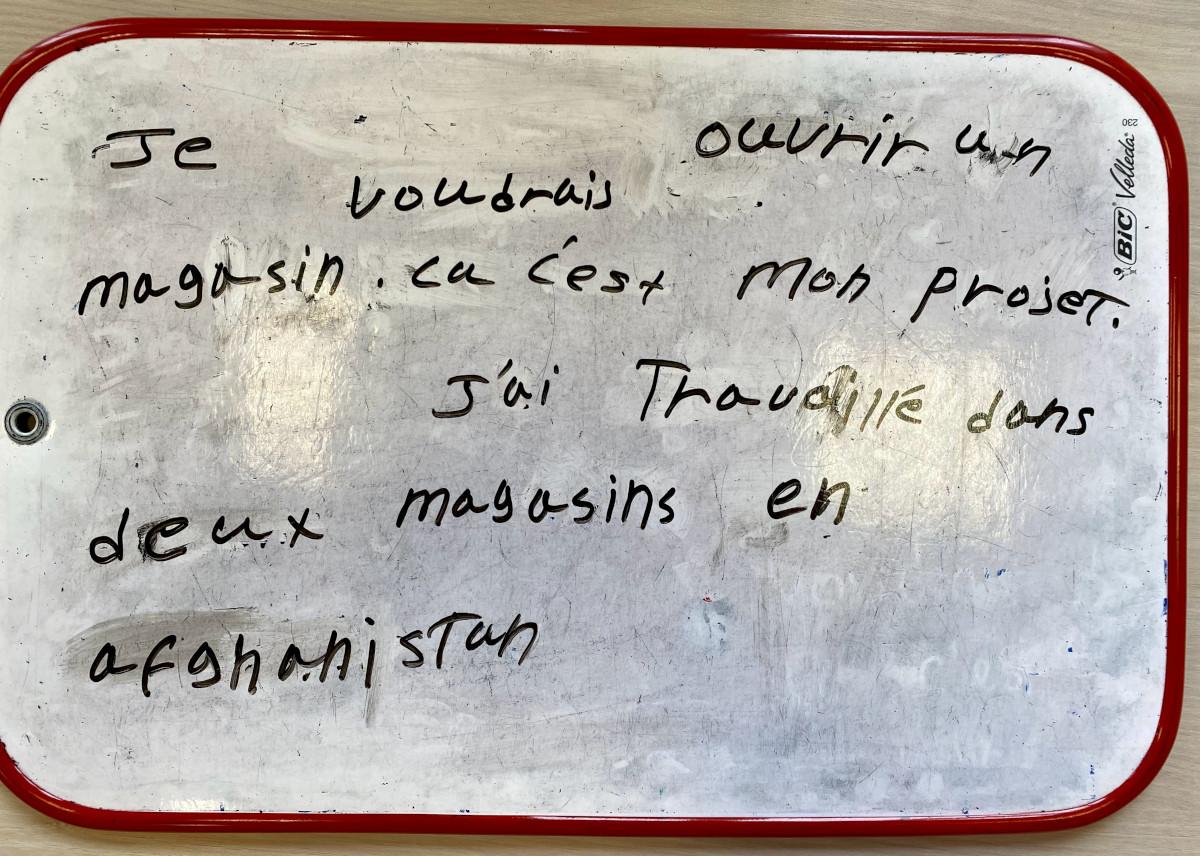 Je voudrais ouvrir un
magasin. ca c'est mon projet.
J'ai Travaillé dans
deux magasins en
afghanistan
BIC Velleda
230